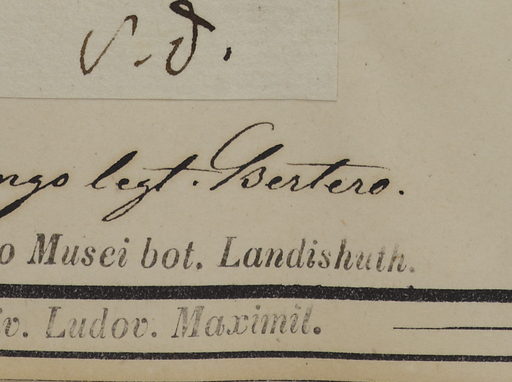 S. D.
ngo legt. Bertero.
o Musei bot. Landishuth.
iv. Ludov. Maximil.